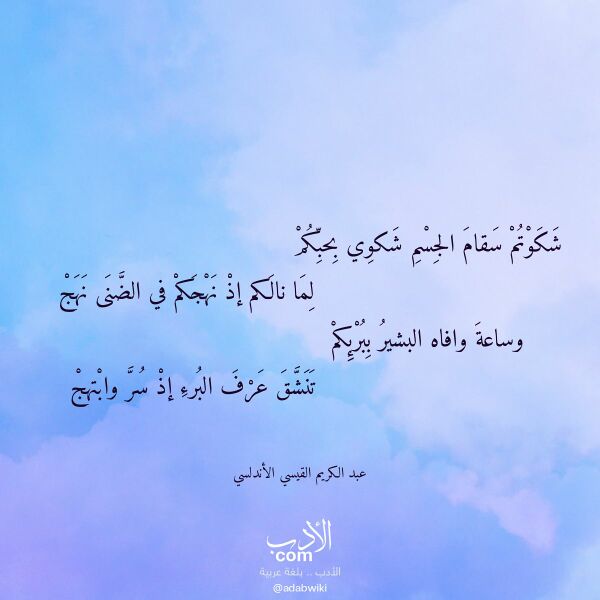 شَكَوْتُمْ سَقامَ الجِسْمِ شَكوِي بِحِبِّكُمْ
لِمَا نالَكم إذْ نَهْجَكمْ في الضَّنَى نَهَجْ
وساعةَ وافاه البشيرُ بِبُرْئِكمْ
تَنَشَّقَ عَرْفَ البُرءِ إذْ سُرَّ وابْتهجْ
عبد الكريم القيسي الأندلسي
الأدب
com
الأدب .. بلغة عربية
@adabwiki